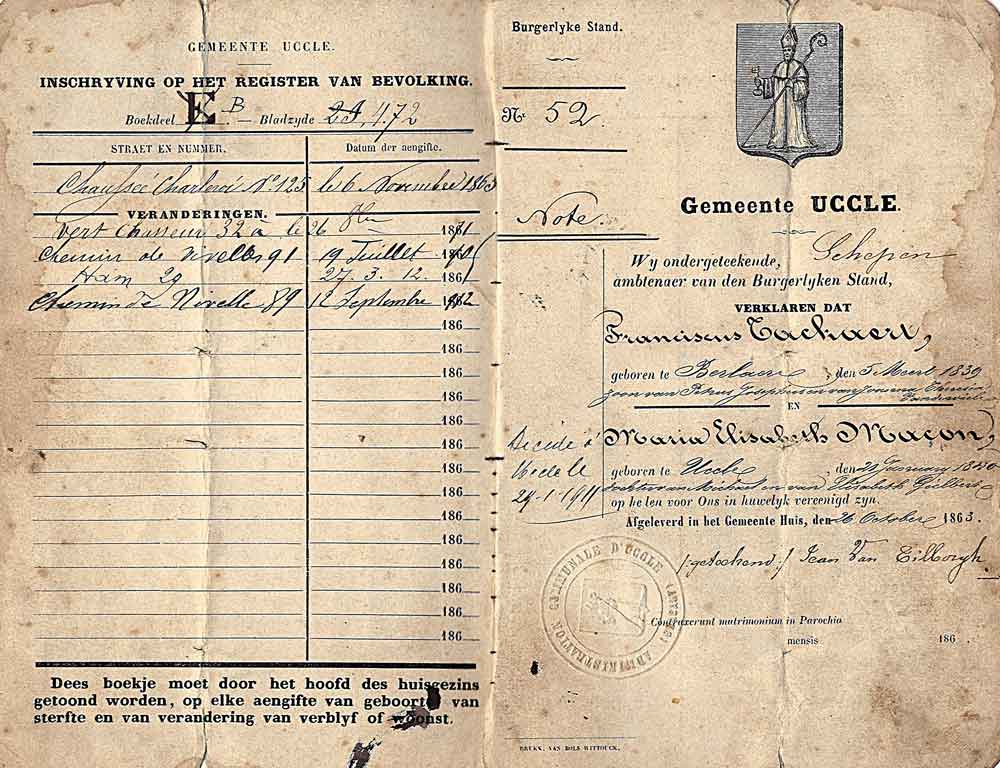 GEMEENTE UCCLE.
INSCHRYVING OP HET REGISTER VAN BEVOLKING.
Boekdeel E B. — Bladzyde 472
STRAET EN NUMMER.
Datum der aengifte.
Chaussée Charleroi No 125 le 6 Novembre 1863
VERANDERINGEN.
Vert Chasseur 32 a le 26 1871
Chemin de Nivelles 91 19 Juillet 186
Ham 29 27. 3. 12 186
Chemin de Nivelle 89 12 Septembre 1862
186
186
186
186
186
186
186
186
186
186
186
186
186
Dees boekje moet door het hoofd des huisgezins
getoond worden, op elke aengifte van geboorte van
sterfte en van verandering van verblyf of woonst.
Burgerlyke Stand.
No 52
Note.
Décédé à
Uccle le
29-1-1911
Gemeente UCCLE.
Wy ondergeteekende, Schepen
ambtenaer van den Burgerlyken Stand,
VERKLAREN DAT
Franciscus Tackaert,
geboren te Berlaere, den 5 Meert 1839
zoon van Petrus Josephus en van Joanna Theresia
EN
Maria Elisabeth Maçon,
geboren te Uccle, den 21 January 1840
dochter van Michael en van Elisabeth Gilbert
op he len voor Ons in huwelyk vereenigd zyn.
Afgeleverd in het Gemeente Huis, den 26 October 1863.
/:geteekend:/ Jean Van Tilborgh
ADMINISTRATION COMMUNALE D'UCCLE (BRABANT)
Contraxerunt matrimonium in Parochia
mensis 186 .
BRUKN. VAN BOLS WITTOUCK.